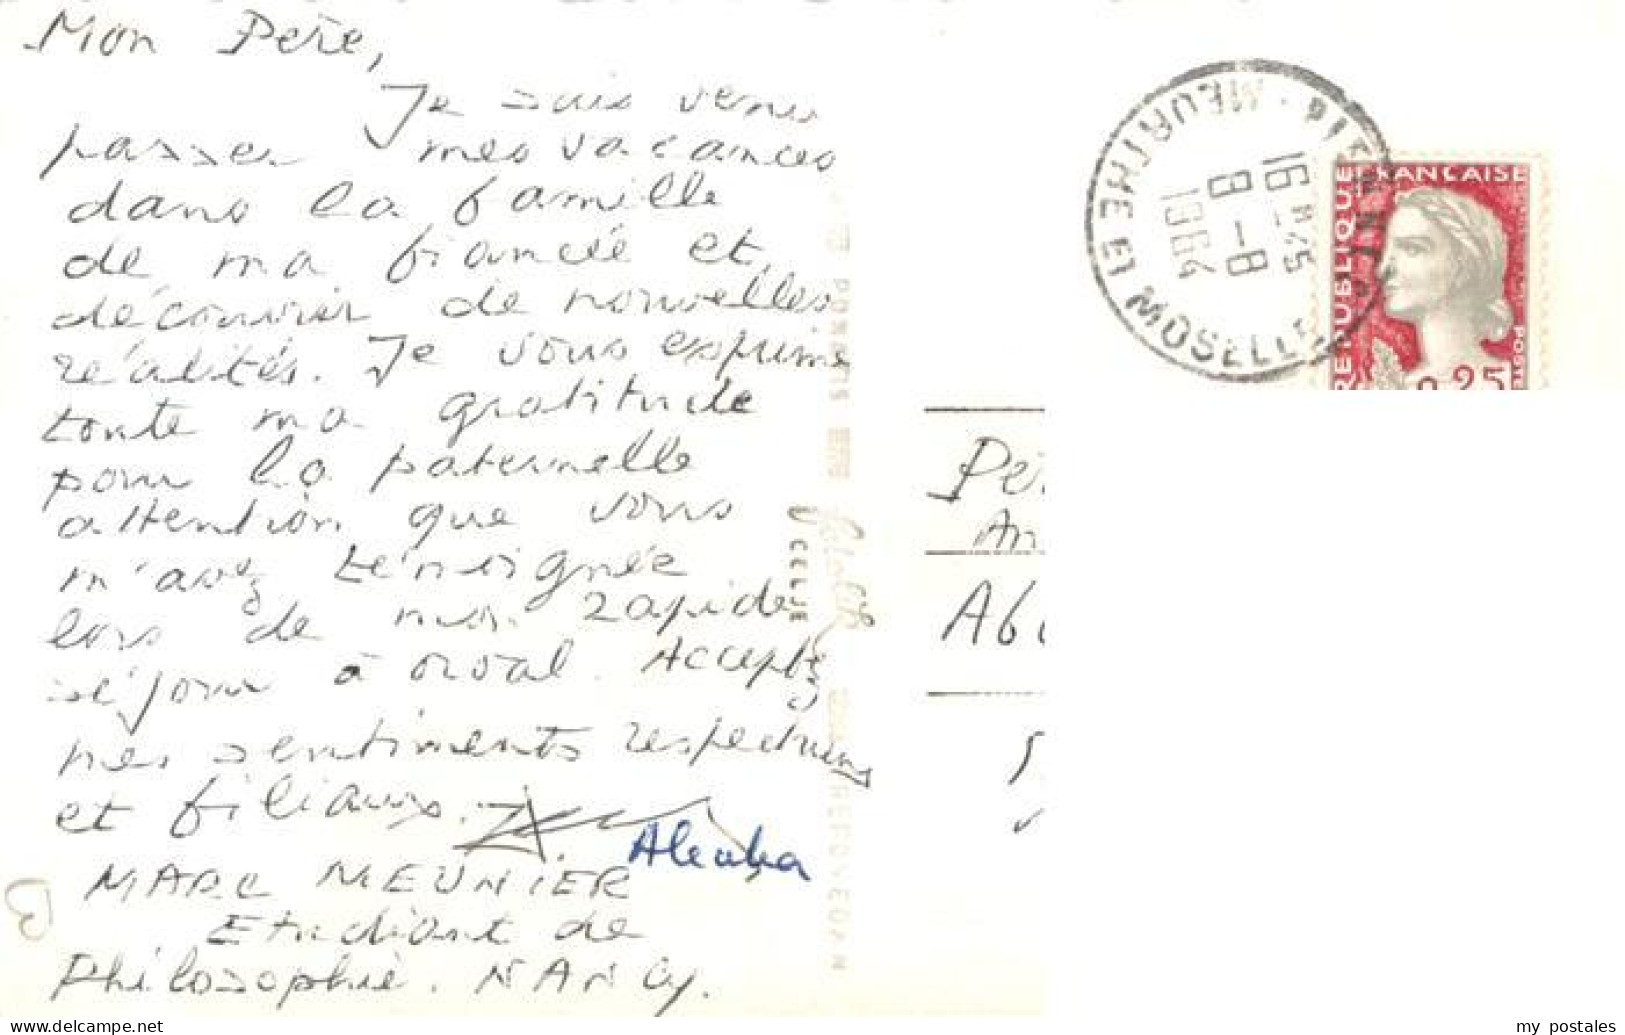 Mon Père,
Je suis venu
passer mes vacances
dans la famille
de ma fiancée et
découvrir de nouvelles
réalités. Je vous exprime
toute ma gratitude
pour la paternelle
attention que vous
m'avez témoignée
lors de mon rapide
séjour à Orval. Acceptez
mes sentiments respectueux
et filiaux.
MARC MEUNIER
Etudiant de
Philosophie. NANCY.
CELJE
MEURTHE ET MOSELLE
16 H 45
8 - 8
1964
REPUBLIQUE
FRANÇAISE
POSTE
0,25
Abu
delcampe.net
my postales